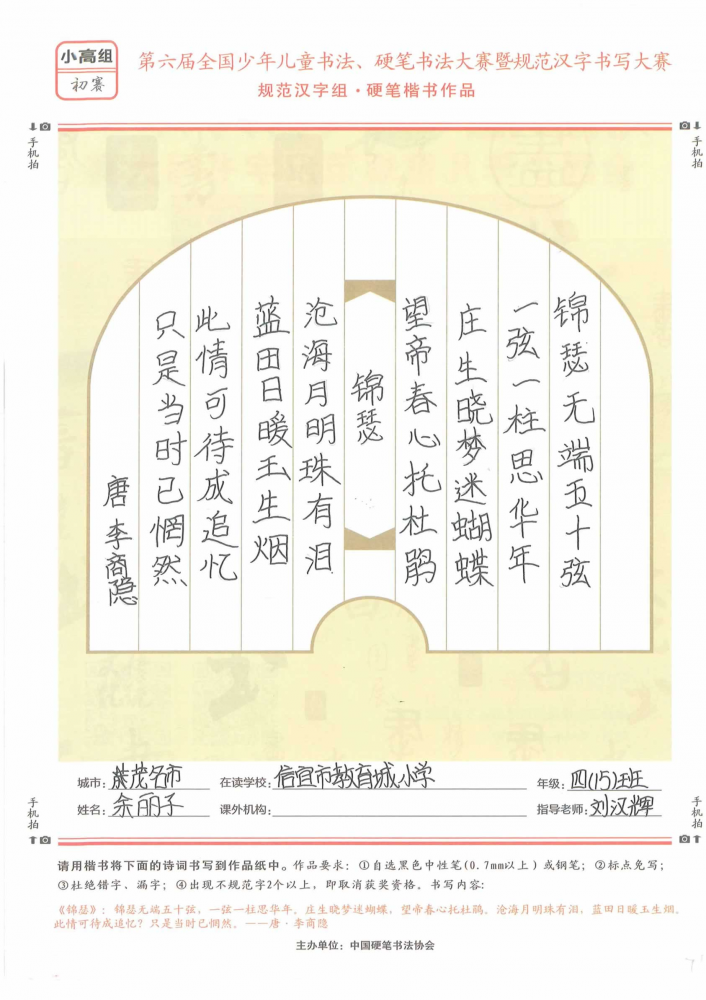 小高组
初赛
第六届全国少年儿童书法、硬笔书法大赛暨规范汉字书写大赛
规范汉字组·硬笔楷书作品
手机拍
手机拍
锦瑟无端五十弦
一弦一柱思华年
庄生晓梦迷蝴蝶
望帝春心托杜鹃
锦瑟
沧海月明珠有泪
蓝田日暖玉生烟
此情可待成追忆
只是当时已惘然
唐 李商隐
城市：茂名市 在读学校：信宜市教育城小学 年级：四(15)班
姓名：余丽子 课外机构： 指导老师：刘汉辉
手机拍
手机拍
请用楷书将下面的诗词书写到作品纸中。作品要求：①自选黑色中性笔(0.7mm以上)或钢笔；②标点免写；
③杜绝错字、漏字；④出现不规范字2个以上，即取消获奖资格。书写内容：
《锦瑟》：锦瑟无端五十弦，一弦一柱思华年。庄生晓梦迷蝴蝶，望帝春心托杜鹃。沧海月明珠有泪，蓝田日暖玉生烟。
此情可待成追忆？只是当时已惘然。——唐·李商隐
主办单位：中国硬笔书法协会